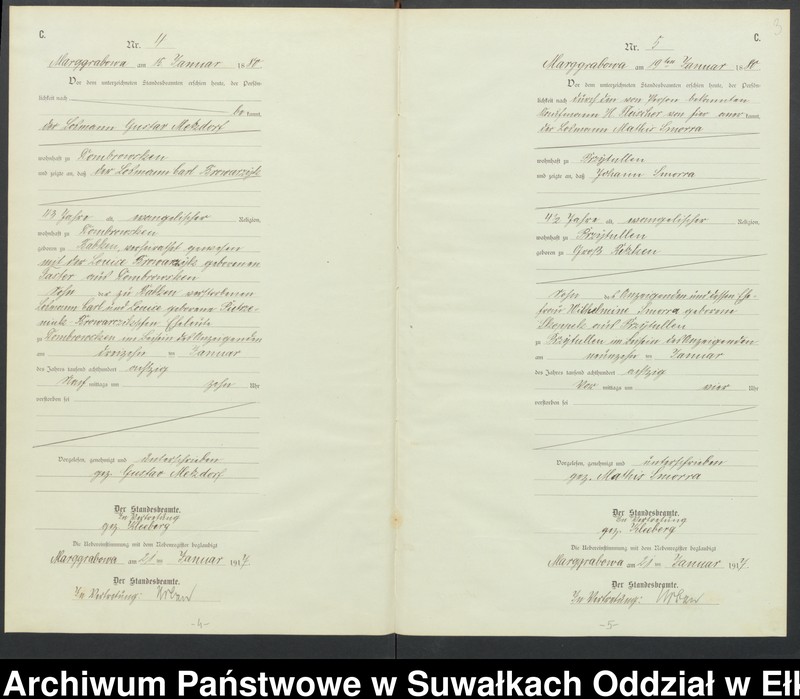 C.
Nr. 4
Marggrabowa am 15 Januar 1880
Vor dem unterzeichneten Standesbeamten erschien heute, der Persön-
lichkeit nach
be kannt,
der Losmann Gustav Metzdorf
wohnhaft zu Dombrowsken
und zeigte an, daß der Losmann Carl
43 Jahre alt, evangelischer Religion,
wohnhaft zu Dombrowsken
geboren zu verheirathet gewesen
mit der Louise geborenen
aus Dombrowsken
Sohn der zu verstorbenen
Losmann Carl und Louise geborene
Eheleute
zu Dombrowsken im Beisein des Anzeigenden
am dreizehn ten Januar
des Jahres tausend achthundert achtzig
Nach mittags um zehn Uhr
verstorben sei
Vorgelesen, genehmigt und unterschrieben
gez. Gustav Metzdorf
Der Standesbeamte.
In Vertretung
gez.
Die Uebereinstimmung mit dem Nebenregister beglaubigt
Marggrabowa am 21 ten Januar 1914
Der Standesbeamte.
In Vertretung: Urban
-4-
3
C.
Nr. 5
Marggrabowa am 19ten Januar 1880
Vor dem unterzeichneten Standesbeamten erschien heute, der Persön-
lichkeit nach durch den von Person bekannten
Kaufmann H. Fleischer von hier aner kannt,
der Losmann Mathis Smorra
wohnhaft zu Przytullen
und zeigte an, daß Johann Smorra
4 1/2 Jahre alt, evangelischer Religion,
wohnhaft zu Przytullen
geboren zu Groß Retzken
Sohn des Anzeigenden und dessen Ehe-
frau Wilhelmine Smorra geborene
aus Przytullen
zu Przytullen im Beisein des Anzeigenden
am neunzehn ten Januar
des Jahres tausend achthundert achtzig
Vor mittags um vier Uhr
verstorben sei
Vorgelesen, genehmigt und unterschrieben
gez. Mathis Smorra
Der Standesbeamte.
In Vertretung
gez.
Die Uebereinstimmung mit dem Nebenregister beglaubigt
Marggrabowa am 21 ten Januar 1914
Der Standesbeamte.
In Vertretung: Urban
-5-
Archiwum Państwowe w Suwałkach Oddział w Ełk